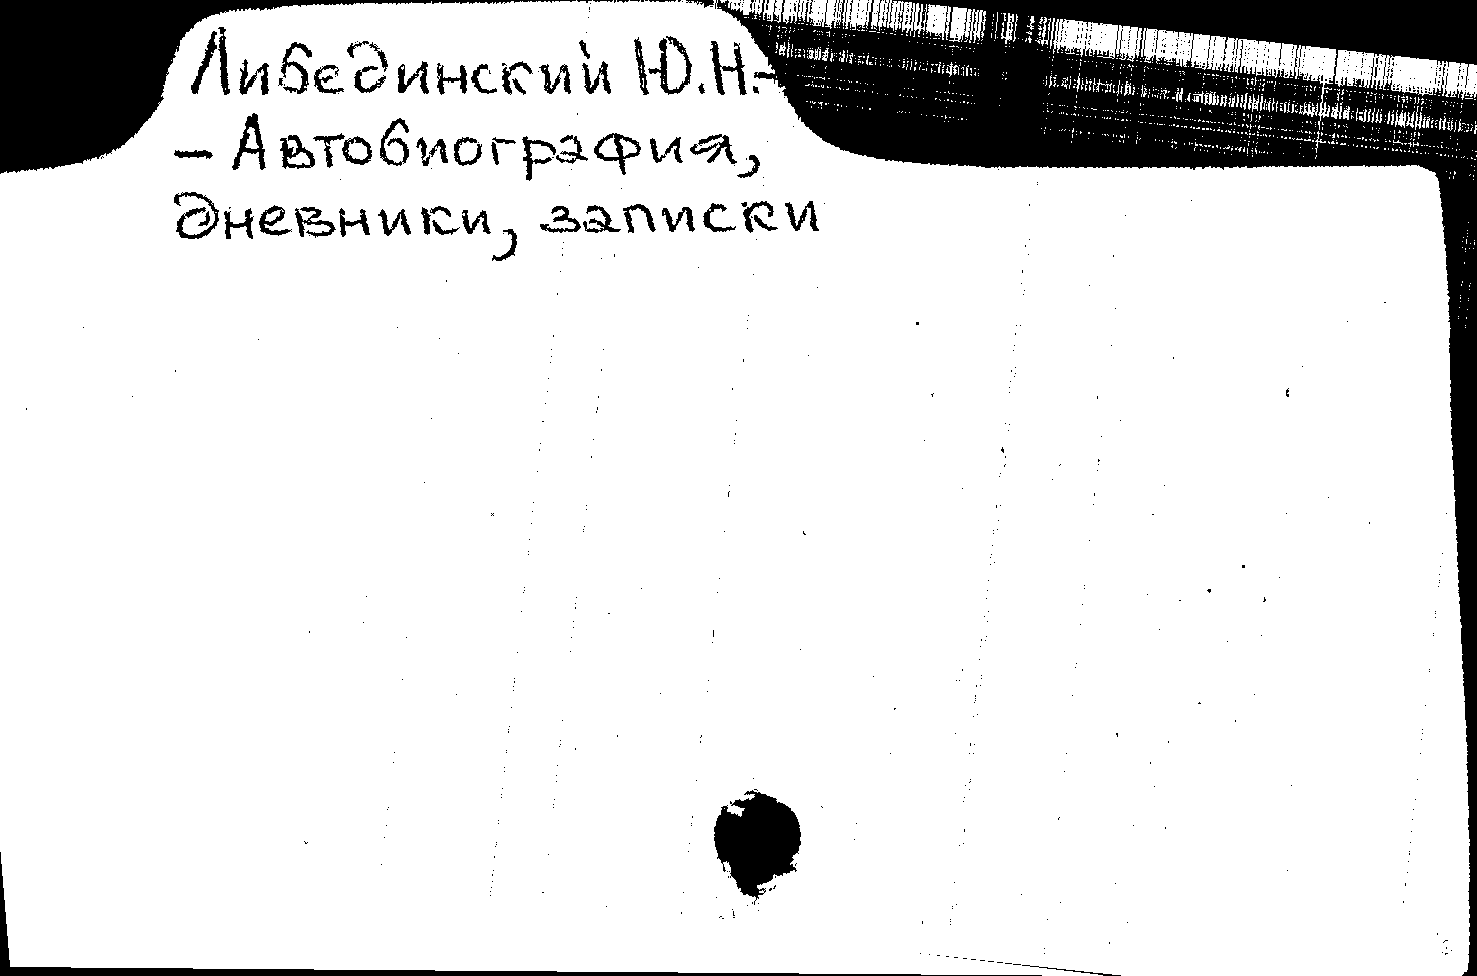 Либединский Ю.Н.-
- Автобиография,
дневники, записки